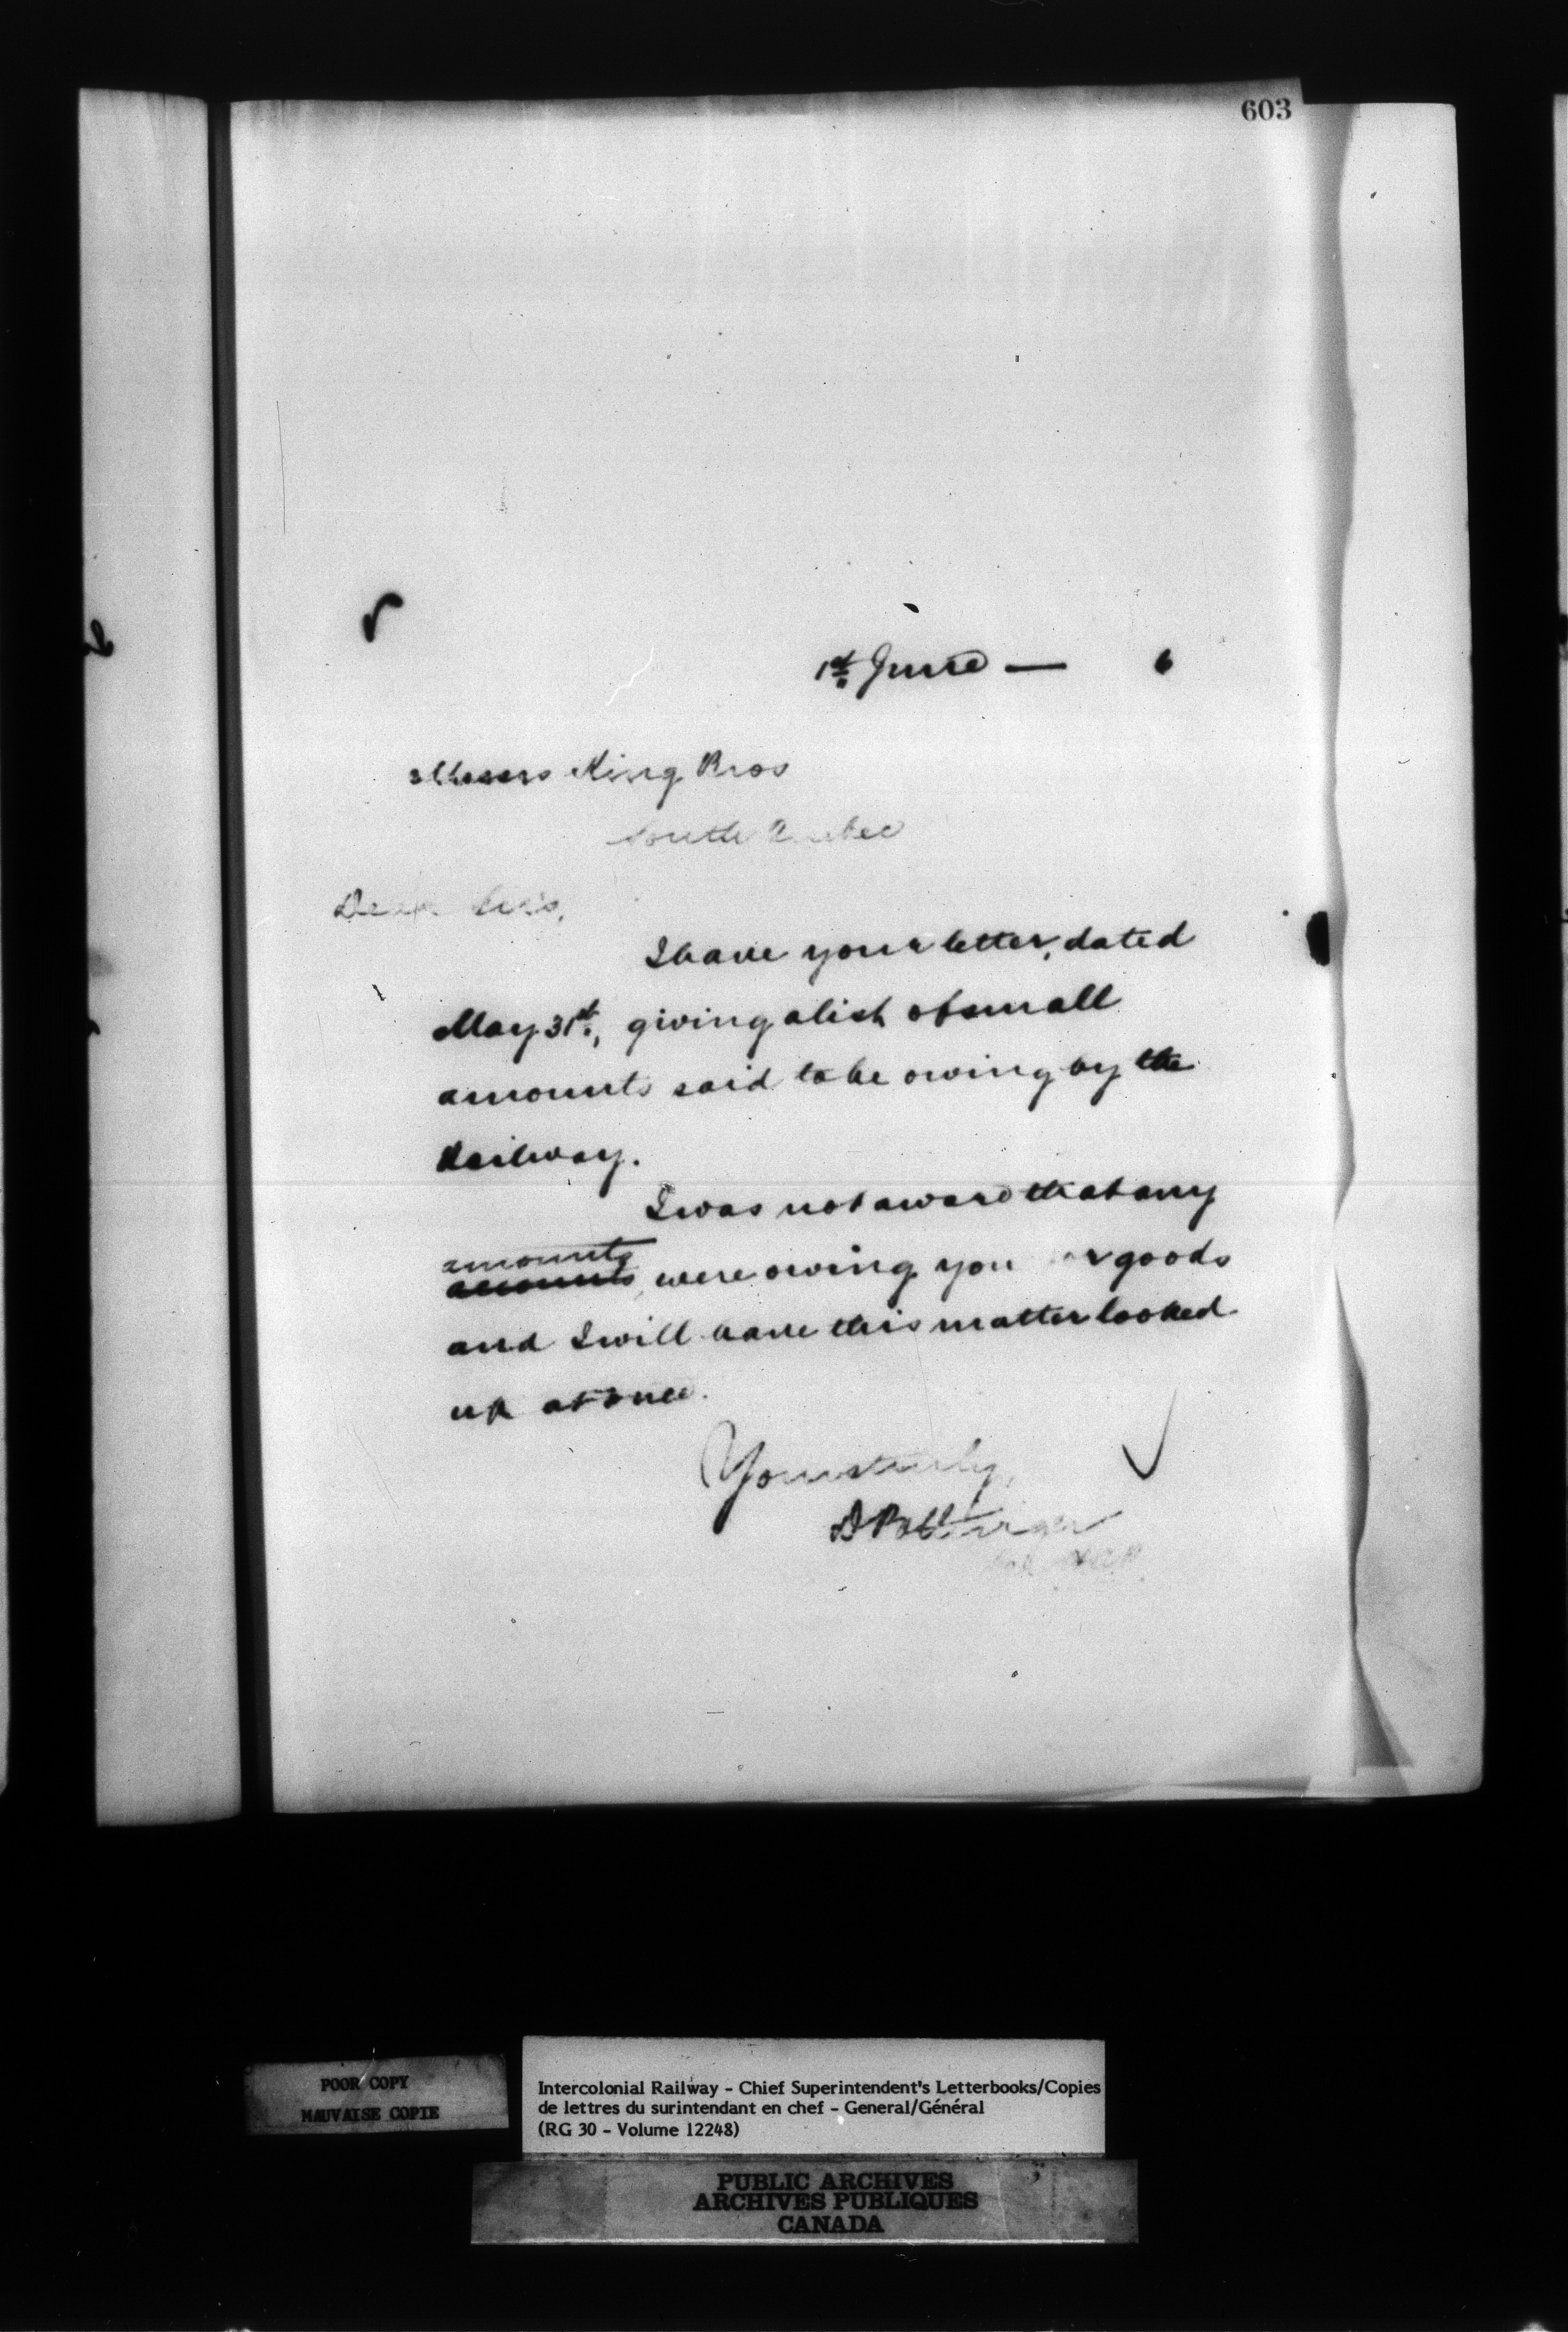 603
1st June — 6
Messrs King Bros
South Quebec
Dear Sirs,
I have your letter, dated
May 31st, giving a list of small
amounts said to be owing by the
Railway.
I was not aware that any
amounts
accounts were owing you for goods
and I will have this matter looked
up at once.
Yours truly,
D Pottinger
POOR COPY
MAUVAISE COPIE
Intercolonial Railway - Chief Superintendent's Letterbooks/Copies
de lettres du surintendant en chef - General/Général
(RG 30 - Volume 12248)
PUBLIC ARCHIVES
ARCHIVES PUBLIQUES
CANADA